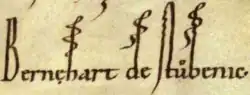 Bernehart de Stůbenic.